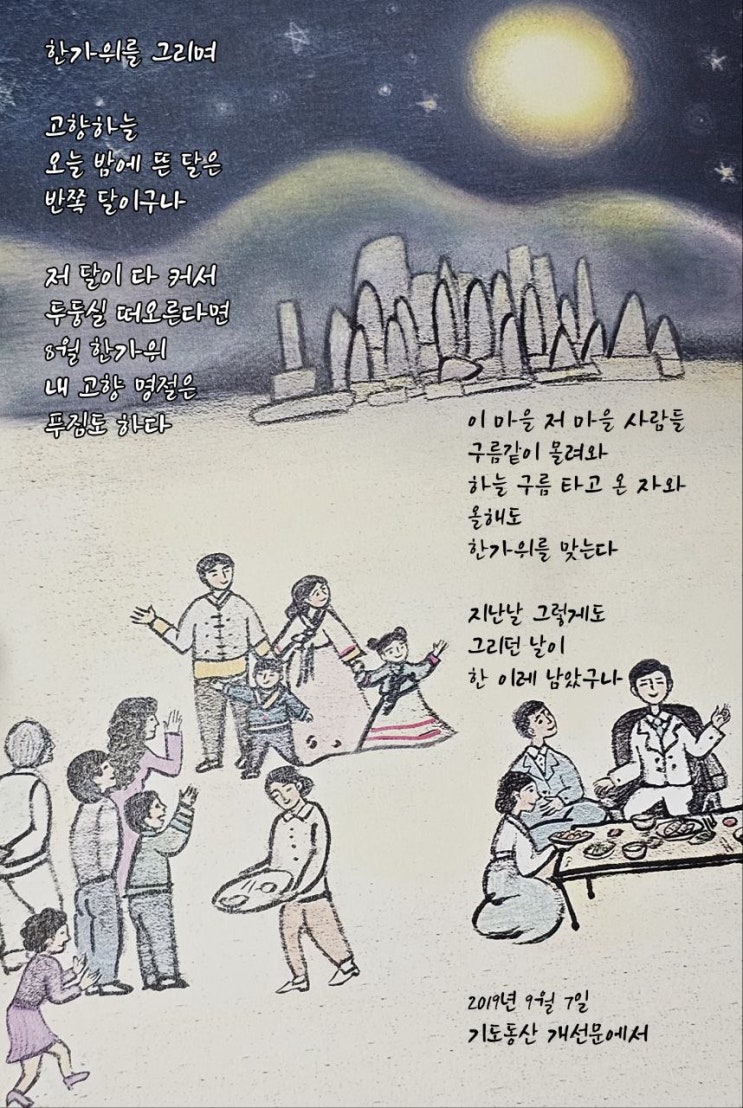 한가위를 그리며
고향하늘
오늘 밤에 뜬 달은
반쪽 달이구나
저 달이 다 커서
두둥실 떠오른다면
8월 한가위
내 고향 명절은
푸짐도 하다
이 마을 저 마을 사람들
구름같이 몰려와
하늘 구름 타고 온 자와
올해도
한가위를 맞는다
지난날 그렇게도
그리던 날이
한 이레 남았구나
2019년 9월 7일
기도동산 개선문에서